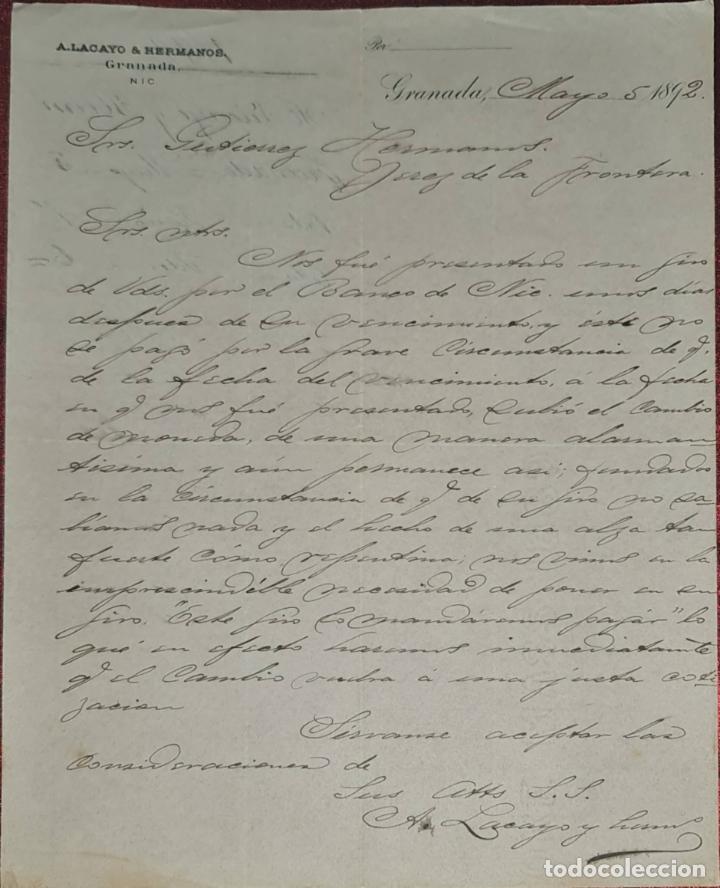 A. LACAYO & HERMANOS.
Granada.
NIC
Por
Granada, Mayo 5 1892.
Srs. Gutierrez Hermanos.
Jerez de la Frontera.
Srs. ntros.
Nos fué presentado un giro
de Vds. por el Banco de Nic. unos días
despues de su vencimiento, y éste no
se pagó por la grave circunstancia de q.
de la fecha del vencimiento, á la fecha
en q. nos fué presentado, subió el cambio
de moneda, de una manera alarman
tisima y aún permanece asi; fundados
en la circunstancia de q. de su giro no sa-
biamos nada y el hecho de una alza tan
fuerte cómo repentina; nos vimos en la
imprescindible necesidad de poner en su
giro. "Este giro lo mandáremos pagár" lo
qué en efecto haremos inmediatamte
q. el cambio vuelva á una justa coti
zacion
Sirvanse aceptar las
Consideraciones de
Sus Atts S. S.
A. Lacayo y herms
todocoleccion